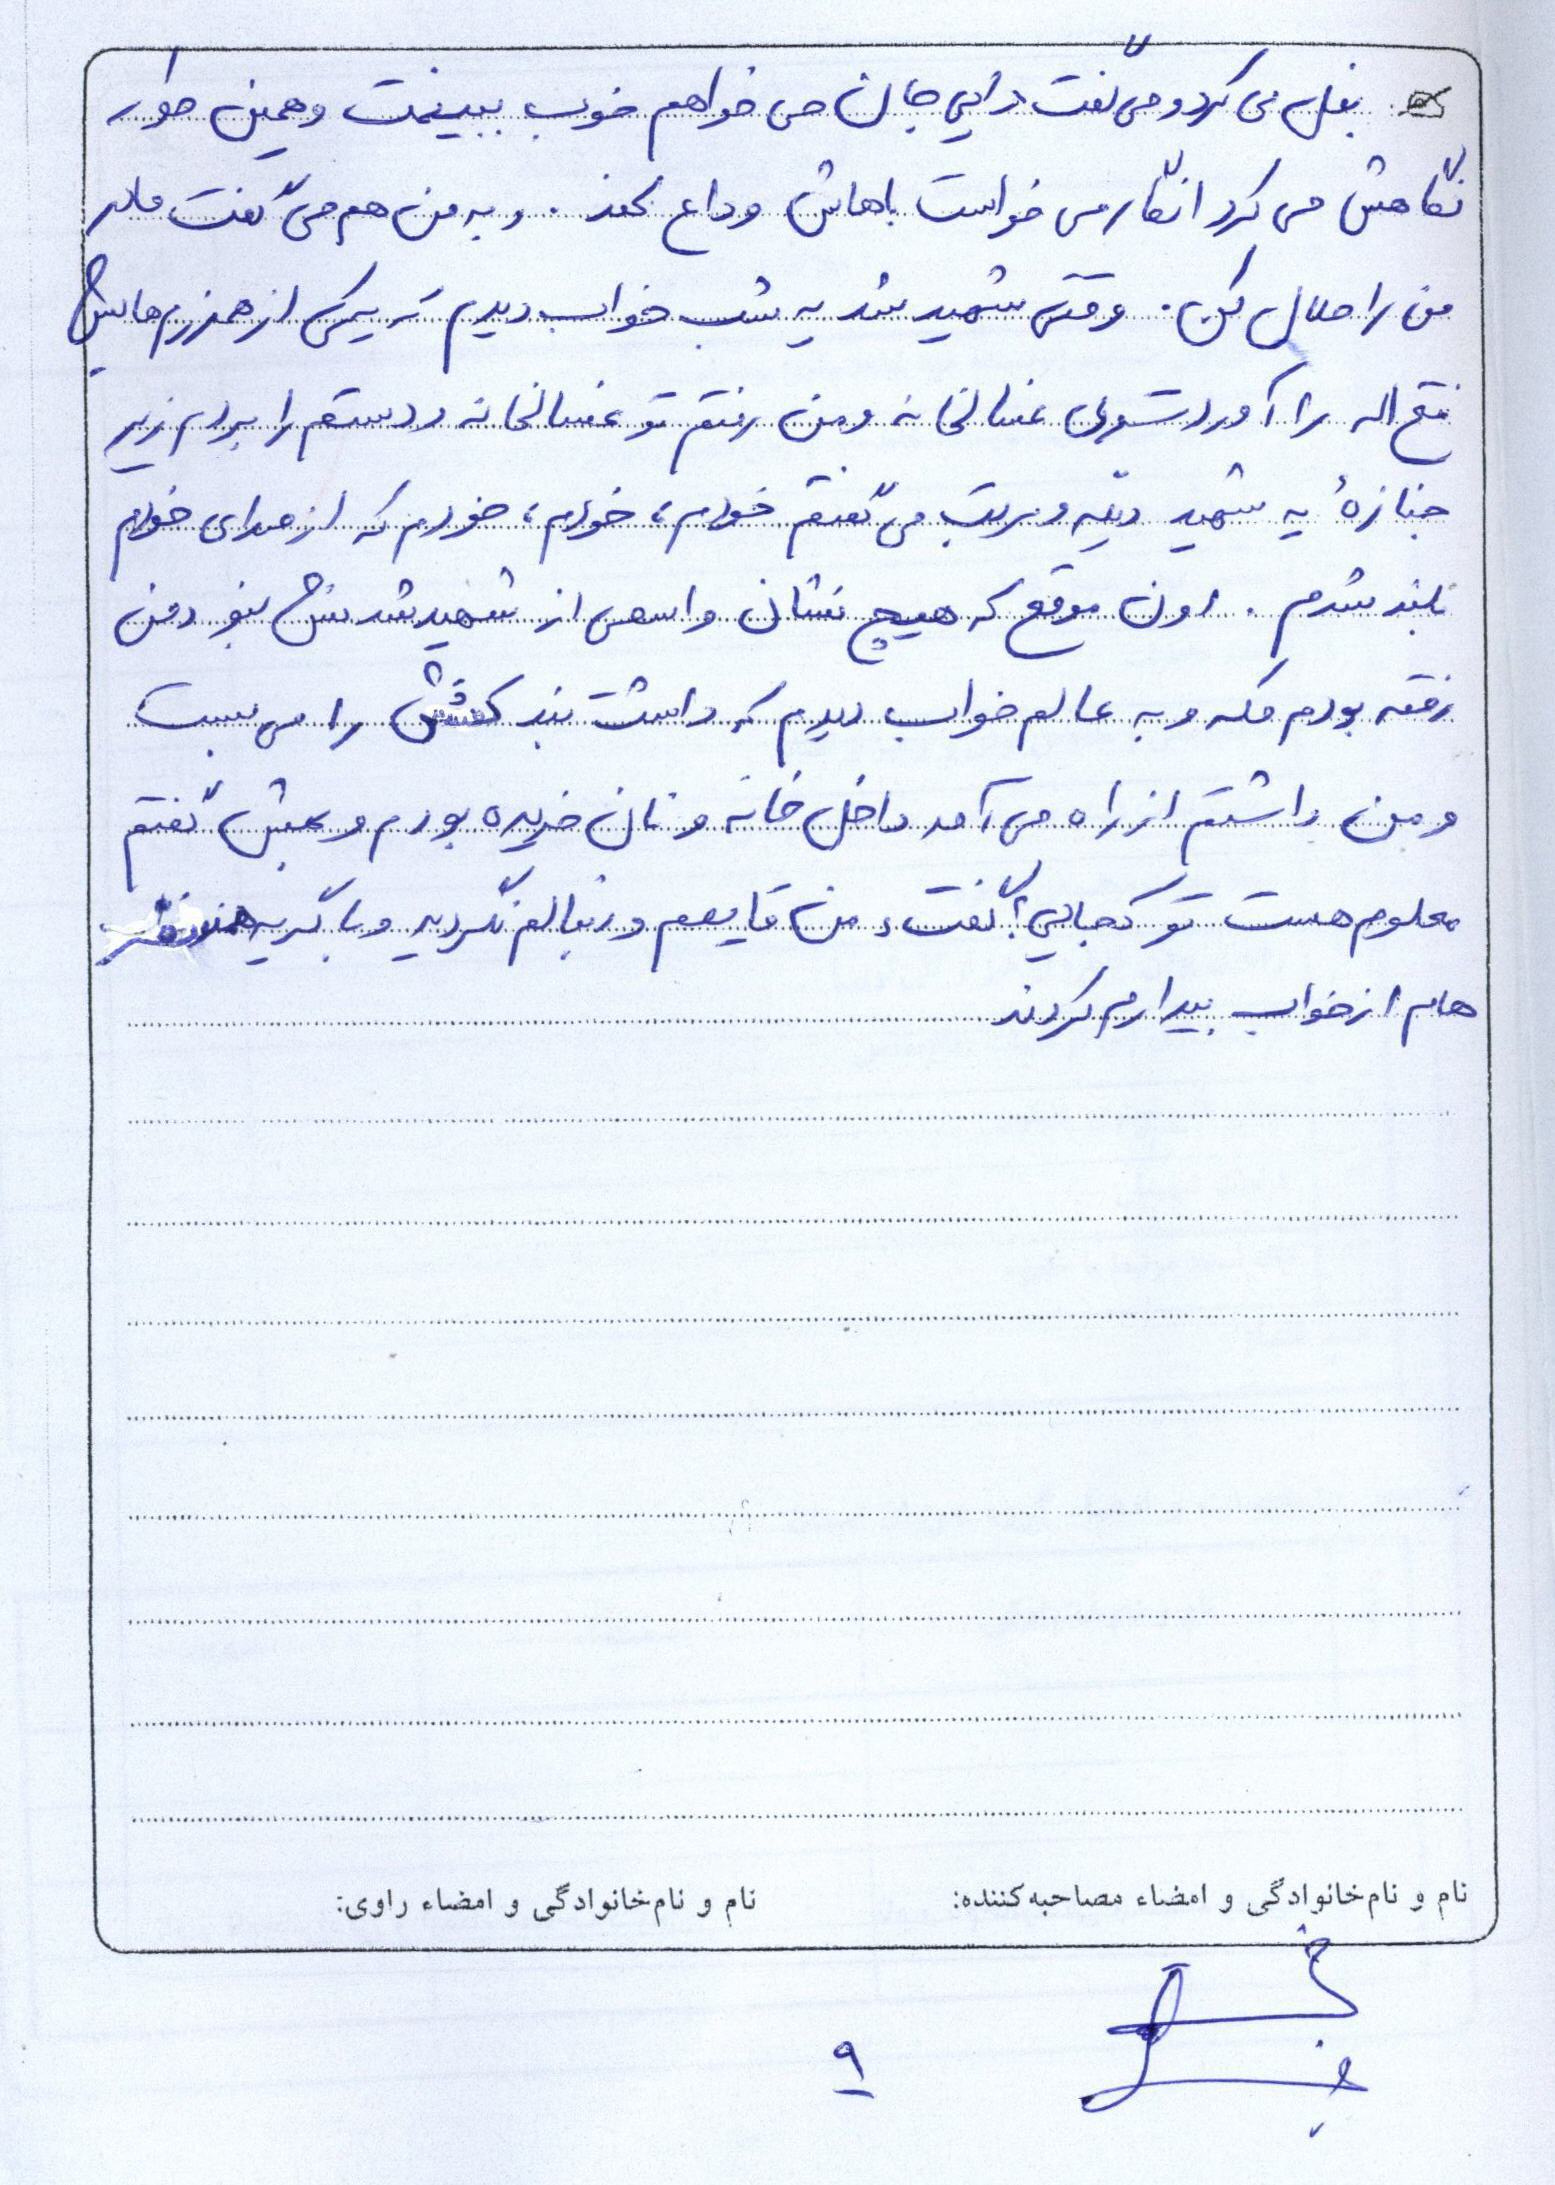 بغل می کرد و می گفت دایی جان می خواهم خوب ببینمت و همین طور
نگاهش می کرد انگار می خواست باهاش وداع بکند . و به من هم می گفت مادر
من را حلال کن . وقتی شهید شد یه شب خواب دیدم که یکی از همرزم هایش
فتح اله را آورد توی غسالخانه و من رفتم تو غسالخانه و دستم را بردم زیر
جنازهٔ یه شهید دیگه و مرتب می گفتم خودم، خودم، خودم که از صدای خودم
بلند شدم . اون موقع که هیچ نشان و اسمی از شهید شدنش نبود من
رفته بودم مکه و به عالم خواب دیدم که داشت بند کفشش را می بست
و من داشتم از راه می آمد داخل خانه و نان خریده بودم و بهش گفتم
معلوم هست تو کجایی؟ گفت، من قایمم و دنبالم نگردید و با گریه
هام از خواب بیدارم کردند
نام و نام‌خانوادگی و امضاء مصاحبه‌کننده:
نام و نام‌خانوادگی و امضاء راوی:
۹